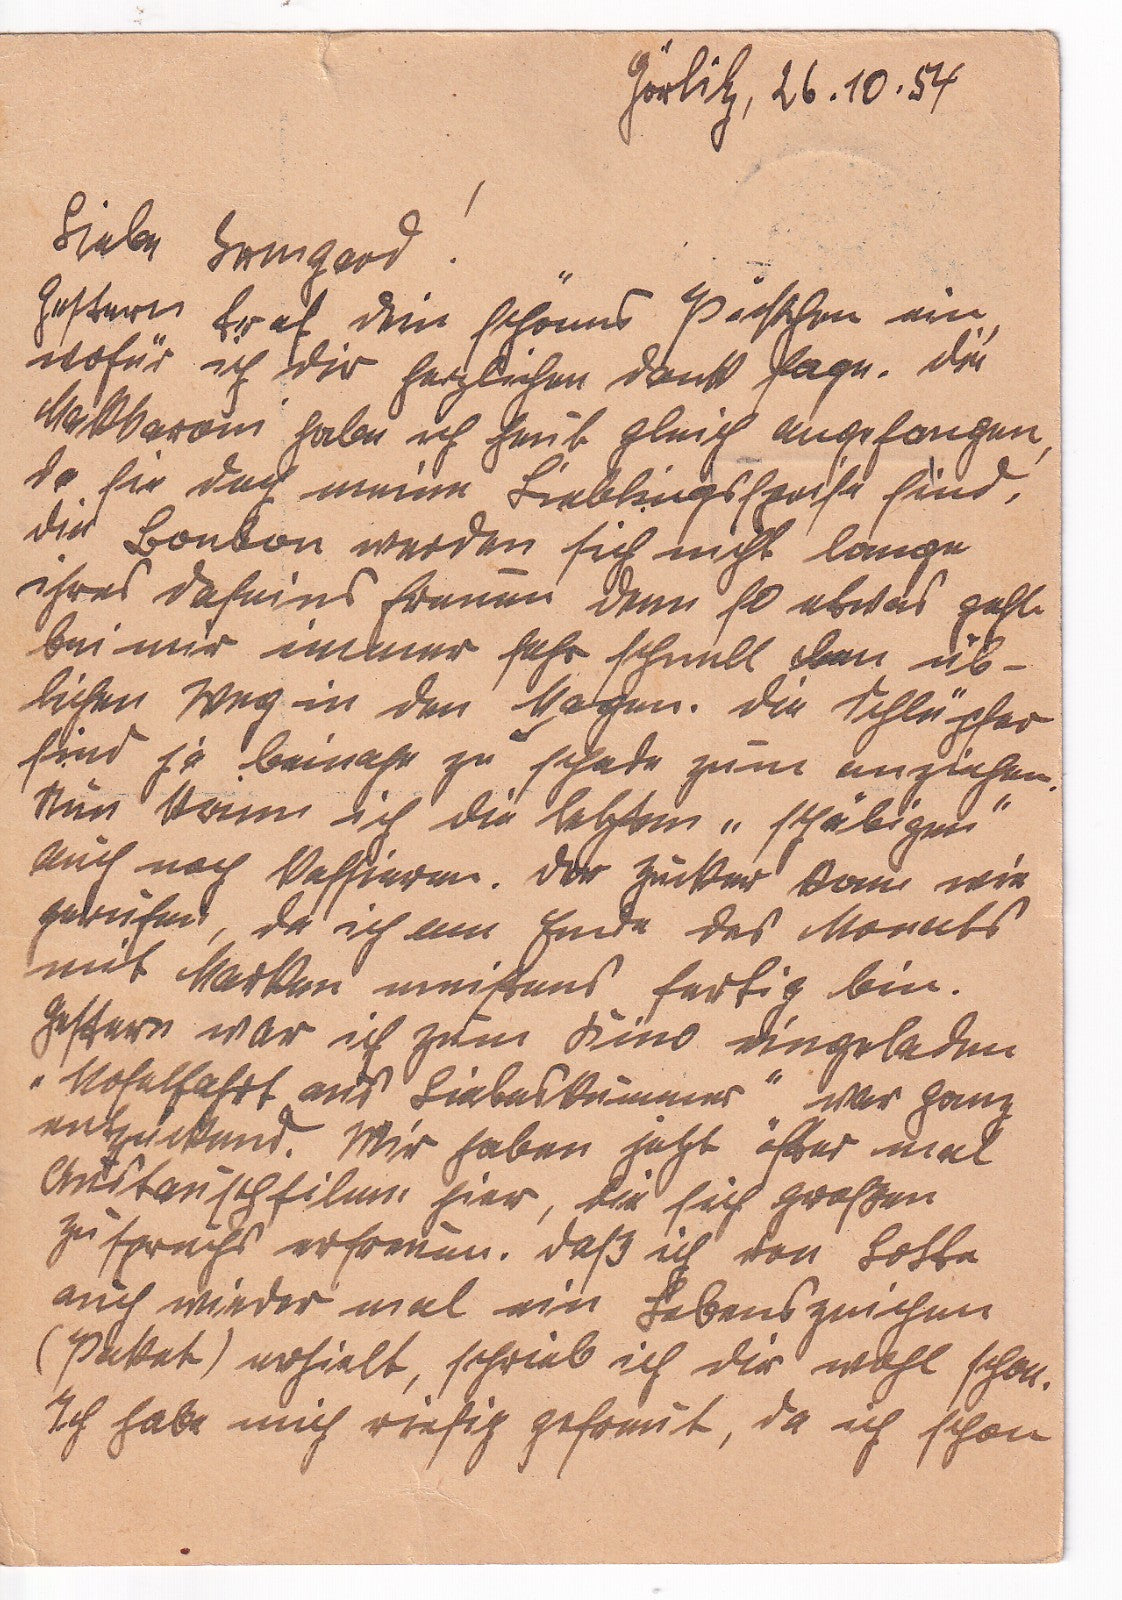 Görlitz, 26.10.54
Liebe Irmgard!
Gestern traf dein schönes Päckchen ein,
wofür ich dir herzlichen dank sage. die
Makkaroni habe ich heut gleich angefangen,
da sie doch meine Lieblingsspeise sind.
die Bonbon werden sich nicht lange
ihres daseins freuen denn so etwas geht
bei mir immer sehr schnell den üb-
lichen Weg in den Magen. die Schlüpfer
sind ja beinahe zu schade zum anziehen.
Nun kann ich die letzten „schäbigen"
auch noch kassieren. der Zucker kam wie
gerufen, da ich am Ende des Monats
mit Marken meistens fertig bin.
Gestern war ich zum Kino eingeladen
"Moselfahrt aus Liebeskummer" war ganz
entzückend. Wir haben jetzt öfter mal
Austauschfilme hier, die sich großen
zuspruchs erfreuen. daß ich von Lotte
auch wieder mal ein Lebenszeichen
(Paket) erhielt, schrieb ich dir wohl schon.
Ich habe mich riesig gefreut, da ich schon